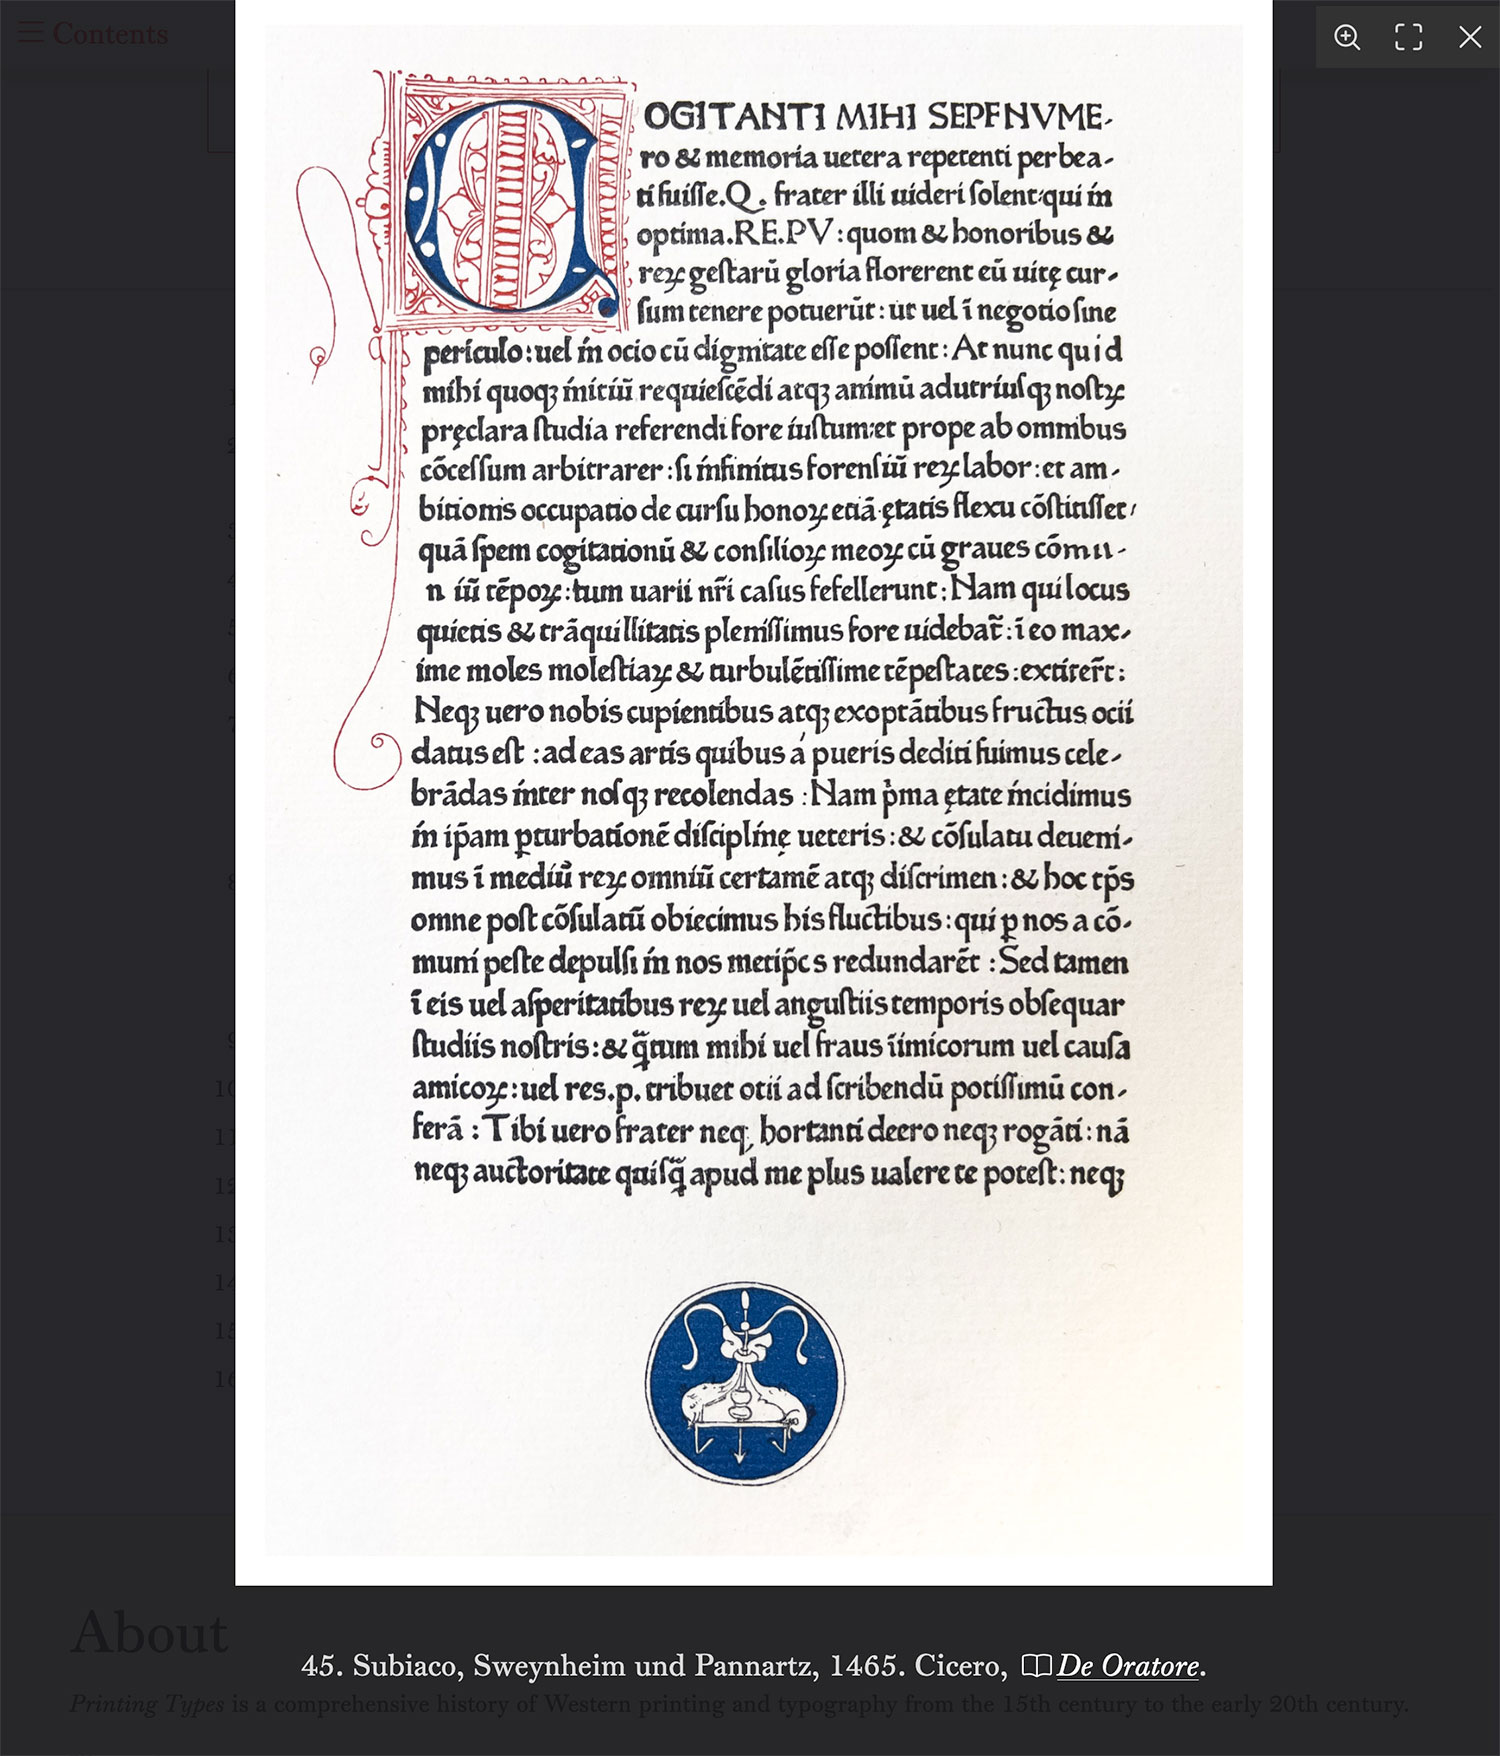 Contents
OGITANTI MIHI SEPE NVME-
ro & memoria uetera repetenti per bea-
ti fuiſſe.Q. frater illi uideri ſolent:qui ín
optima.RE.PV:quom & honoribus &
reꝝ geſtarū gloria florerent eū uitę cur-
ſum tenere potuerūt: ut uel ī negotio ſine
periculo:uel ín ocio cū dignitate eſſe poſſent: At nunc quid
mihi quoqꝫ ínitiū requieſcēdi atqꝫ animū ad utriuſqꝫ noſtꝝ
pręclara ſtudia referendi fore iuſtum:et prope ab omnibus
cōceſſum arbitrarer:ſi ínfinitus forenſiū reꝝ labor:et am-
bitionis occupatio de curſu honoꝝ etiā ętatis flexu cōſtitiſſet/
quā ſpem cogitationū & conſilioꝝ meoꝝ cū graues cōmu-
n iū tēpoꝝ:tum uarii nr̄i caſus fefellerunt:Nam qui locus
quietis & trāquillitatis pleniſſimus fore uidebat̄:ī eo max-
ime moles moleſtiaꝝ & turbulētiſſime tēpeſtates:extiter̄t:
Neqꝫ uero nobis cupientibus atqꝫ exoptātibus fructus ocii
datus eſt :ad eas artis quibus á pueris dediti fuimus cele-
brādas ínter noſqꝫ recolendas :Nam p̍ma ętate íncidimus
ín ip̄am ꝑturbationē diſciplinę ueteris:& cōſulatu deueni-
mus ī mediū reꝝ omniū certamē atqꝫ diſcrimen:& hoc tp̄s
omne poſt cōſulatū obiecimus his fluctibus:qui ꝑ nos a cō-
muni peſte depulſi ín nos metip̄c s redundarēt :Sed tamen
ī eis uel aſperitatibus reꝝ uel anguſtiis temporis obſequar
ſtudiis noſtris:& q̄̃tum mihi uel fraus īimicorum uel cauſa
amicoꝝ:uel res.p. tribuet otii ad ſcribendū potiſſimū con-
ferā :Tibi uero frater neq, hortanti deero neqꝫ rogāti:nā
neqꝫ auctoritate quiſq̄̃ apud me plus ualere te poteſt:neqꝫ
10
11
12
13
14
15
16
About
45. Subiaco, Sweynheim und Pannartz, 1465. Cicero, De Oratore.
Printing Types is a comprehensive history of Western printing and typography from the 15th century to the early 20th century.